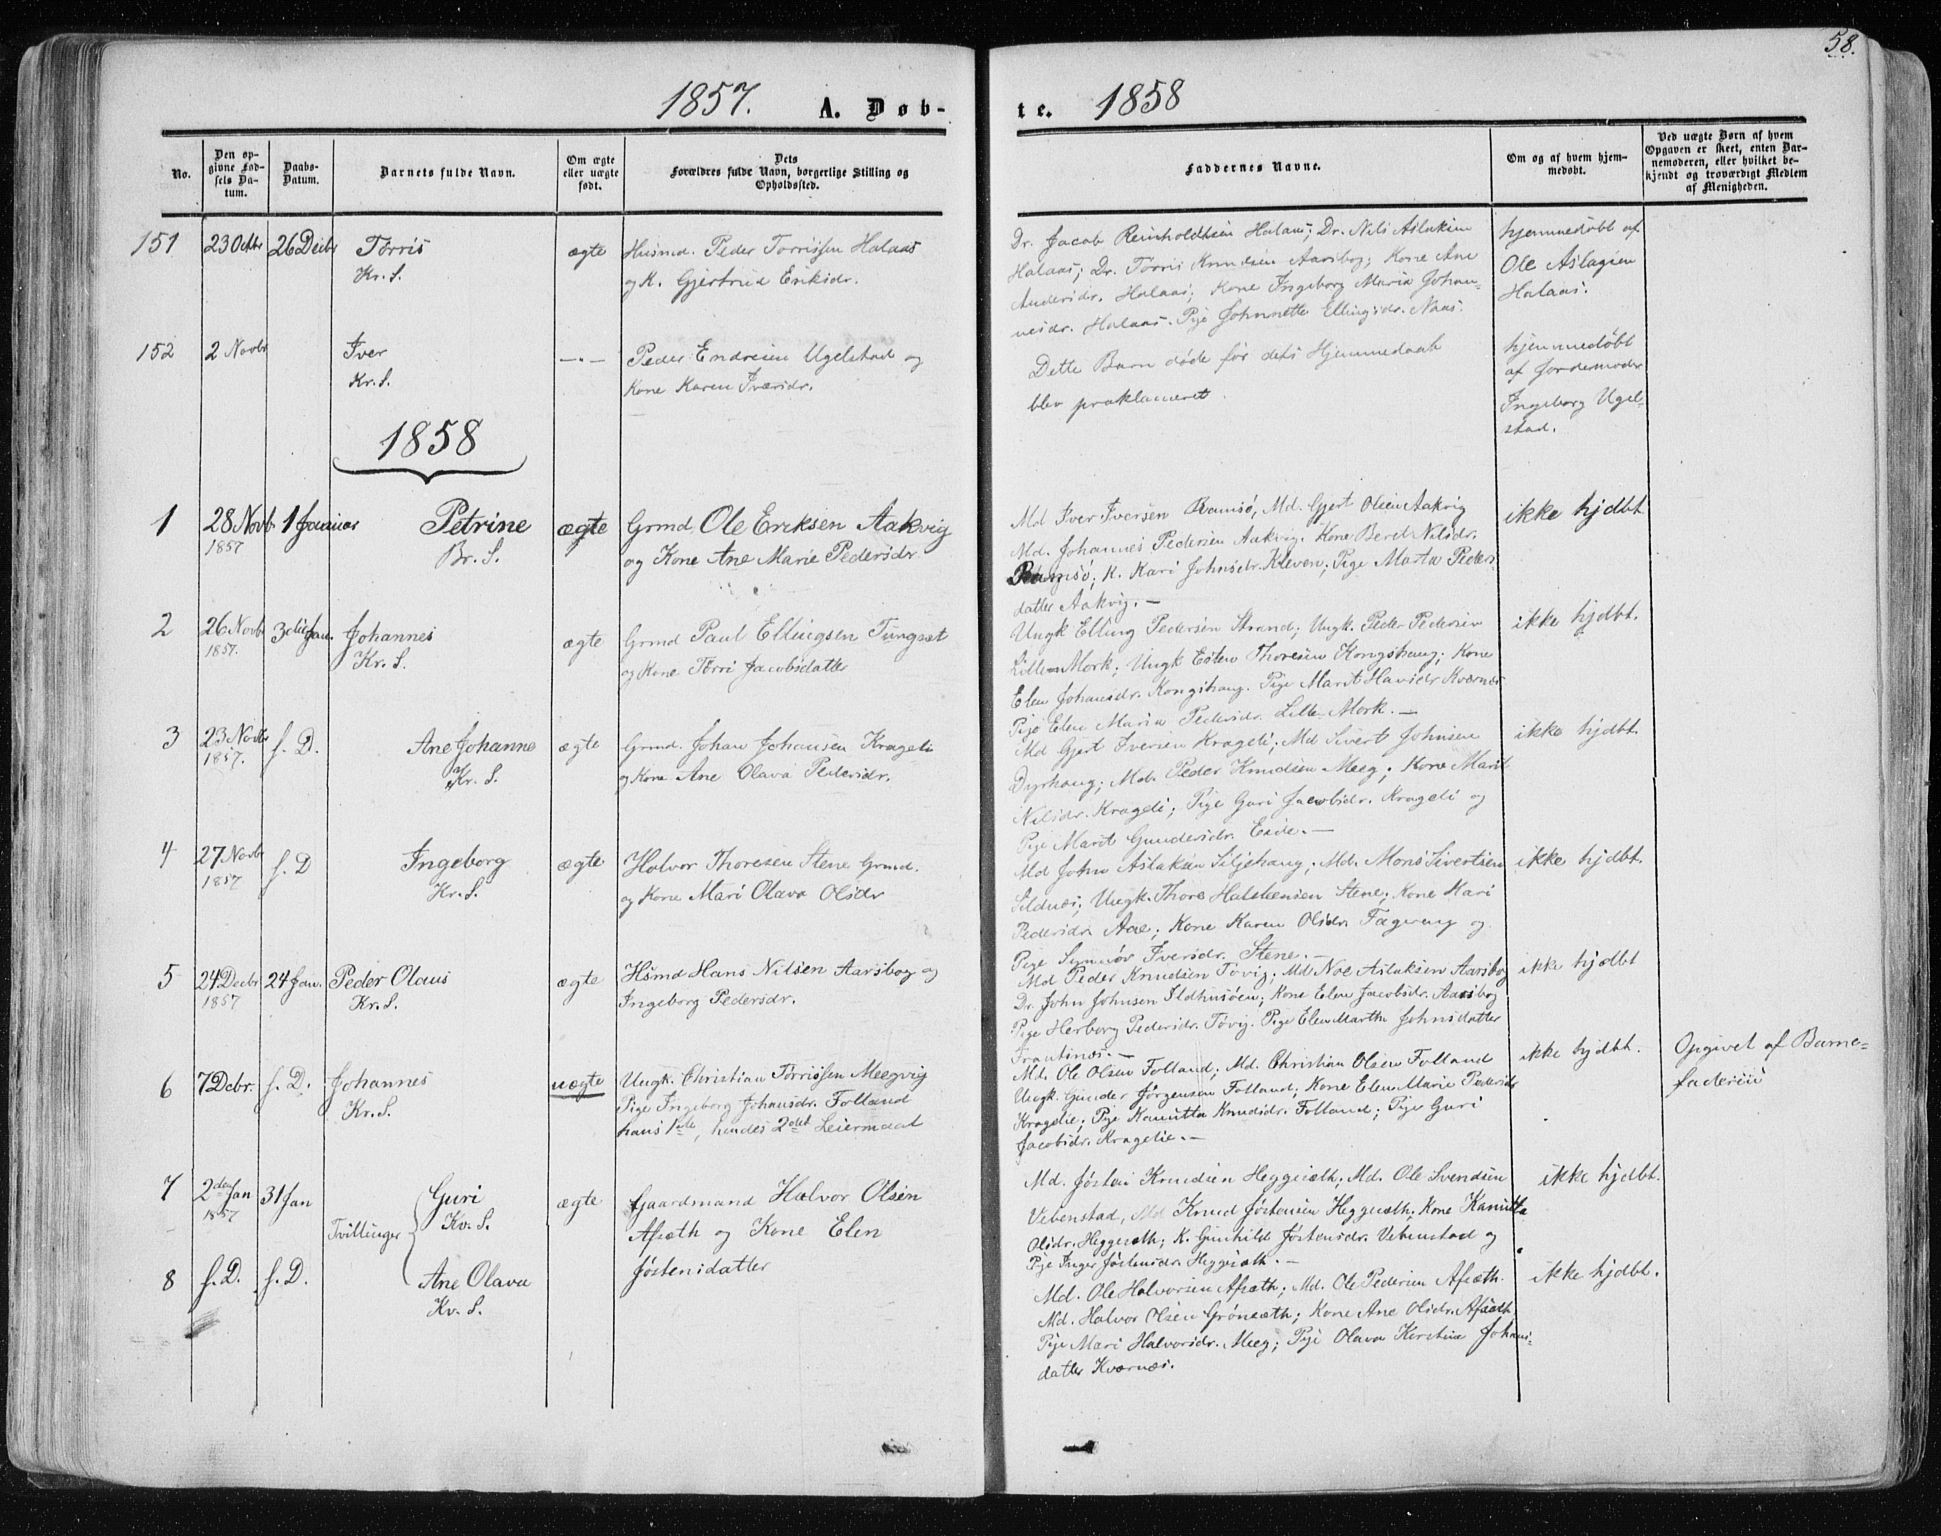 58.
1857. A. Døb-
te. 1858
No.
Den op-
givne Fød-
sels Da-
tum.
Daabs-
Datum.
Barnets fulde Navn.
Om ægte
eller uægte
født.
Dets
Forældres fulde Navn, borgerlige Stilling og
Opholdssted.
Faddernes Navne.
Om og af hvem hjem-
medøbt.
Ved uægte Børn af hvem
Opgaven er skeet, enten Bar-
nemoderen, eller hvilket be-
kjendt og troværdigt Medlem
af Menigheden.
151 23 Octbr 26 Decbr Tørris
Kr. S.
ægte
Husmd. Peder Tørrissen Halaas
og K. Gjertrud Eriksdr.
Dr. Jacob Reinholdtsen Halaas; Dr. Nils Aslaksen
Halaas; Dr. Tørris Knudsen Aarsbog; Kone Ane
Andersdr. Halaas; Kone Ingeborg Maria Johan-
nesdr. Halaas. Pige Johnnette Ellingsdr. Naas.
hjemmedøbt af
Ole Aslagsen
Halaas.
152 2 Novbr Iver
Kr. S.
—"—
Peder Endresen Ugelstad og
Kone Karen Iversdr.
Dette Barn døde før dets Hjemmedaab
blev proklameret.
hjemmedøbt
af Jordemoder
Ingeborg Ugel-
stad.
1858
1 28 Novb 1 Januar Petrine
1857
Br. S.
ægte
Grmd Ole Eriksen Aakvig
og Kone Ane Marie Pedersdr
Md Iver Iversen Ramsø, Md. Gjert Olsen Aakvig
Md. Johannes Pedersen Aakvig. Kone Beret Nilsdr.
Ramsø; K. Kari Johnsdr. Kleven; Pige Marta Peders
datter Aakvig. —
ikke hjdbt
2 26 Novb 3die Jan. Johannes
1857.
Kr. S.
ægte
Grmd Paul Ellingsen Tungset
og Kone Tørri Jacobsdatter
Ungk Elling Pedersen Strand; Ungk. Peder Pedersen
Lille Mork; Ungk Esten Thoresen Kongshaug; Kone
Elen Johansdr. Kongshaug. Pige Marit Havisdr Kvernes
Pige Elen Maria Pedersdr. Lille Mork. —
ikke hjdbt.
3 23 Novbr s. D. Ane Johanne
1857.
Kr. S.
ægte
Grmd. Johan Johansen Krageli
og Kone Ane Olava Pedersdr.
Md Gjert Iversen Krageli; Md Sivert Johnsen
Dyrhaug; Md. Peder Knudsen Meeg; Kone Marit
Nilsdr. Krageli; Pige Guri Jacobsdr. Krageli og
Pige Marit Gundersdr. Eide. —
ikke hjdbt.
4 27 Novbr s. D Ingeborg
1857
Kr. S.
ægte
Halvor Thoresen Stene Grmd.
og Kone Mari Olava Olsdr
Md John Aslaksen Siljehaug; Md. Mons Sivertsen
Sildnes; Ungk. Thore Halstensen Stene; Kone Kari
Pedersdr. Aae; Kone Karen Olsdr. Fageraug og
Pige Synnøv Iversdr. Stene. —
ikke hjdbt.
5 24 Decbr 24 Jan. Peder Olaus
1857
Kr. S.
ægte
Hsmd Hans Nilsen Aarsbog og
Ingeborg Pedersdr.
Md Peder Knudsen Tøvig; Md Noe Aslaksen Aarsbog
Dr. John Johnsen Ildhusøen; Kone Elen Jacobsdr. Aarsbog
Pige Herborg Pedersdr. Tøvig. Pige Elen Martha Johnsdatter
ikke hjdbt
6 7 Dcbr. s. D. Johannes
Kr. S.
uægte
Ungk. Christian Tørrissen Meegvig
Pige Ingeborg Johansdr. Folland
hans 1ste, hendes 2det Leiermaal
Md. Ole Olsen Folland; Md. Christian Olsen Folland
Ungk. Gunder Jørgensen Folland; Kone Elen Marie Pedersdr
Kragelie; Pige Kanutta Knudsdr. Folland; Pige Guri
Jacobsdr. Kragelie. —
ikke hjdbt.
Opgivet af Barne-
faderen
7 2den Jan 31 Jan Guri
1857
Kv. S.
Tvillinger
ægte
Gaardmand Halvor Olsen
Afsæth og Kone Elen
Jøstensdatter
Md. Jøsten Knudsen Heggesæth; Md. Ole Svendsen
Vebenstad, Md Knud Jøstensen Heggesæth; Kone Kanutta
Olsdr. Heggesæth; K. Gunhild Jøstensdr. Vebenstad og
Pige Inger Jøstensdr. Heggesæth. —
ikke hjdbt.
8 s. D. s. D. Ane Olava
Kv. S.
Md. Ole Halvorsen Afsæth; Md. Ole Pedersen Afsæth.
Md. Halvor Olsen Grønsæth; Kone Ane Olsdr. Afsæth
Pige Mari Halvorsdr. Meeg; Pige Olava Kerstina Johans-
datter Kvernes.
ikke hjdbt.